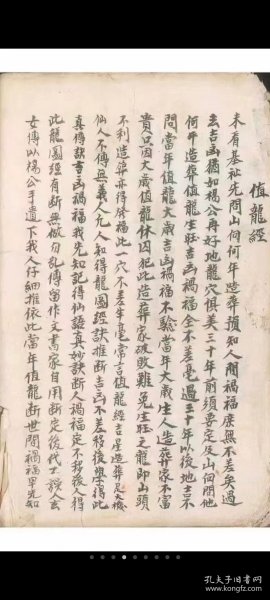 值龍經
未看基祉先問山何何年造葬損知人間禍福庶無不差矣過
去吉凶猶如楊公再好地龍穴俱美三十年前須喜定及山何問他
何年造葬值龍生旺吉凶禍福全不差毫過三十年以後地吉不
問當年值龍大歲吉凶禍福不驗當年大歲生人造葬家不富
貴只因大歲值龍休囚犯此造葬家破敗難免生旺之龍即山頭
不利造葬亦得發福此一穴不差半毫常言值龍經吉星造葬
仙人不傳無義人凡人知得龍圖經訣推斷吉凶不差移後學得此
真傳訣書凶禍福我先知記得仙語真妙訣斷人禍福定不移後人得
此龍圖經有斷無做勿乱傳留作文書家自用斷定後代士誤人去
女傳以楊公手遺下我人仔細推依此當年值龍斷世間禍福早先知
孔夫子旧书网